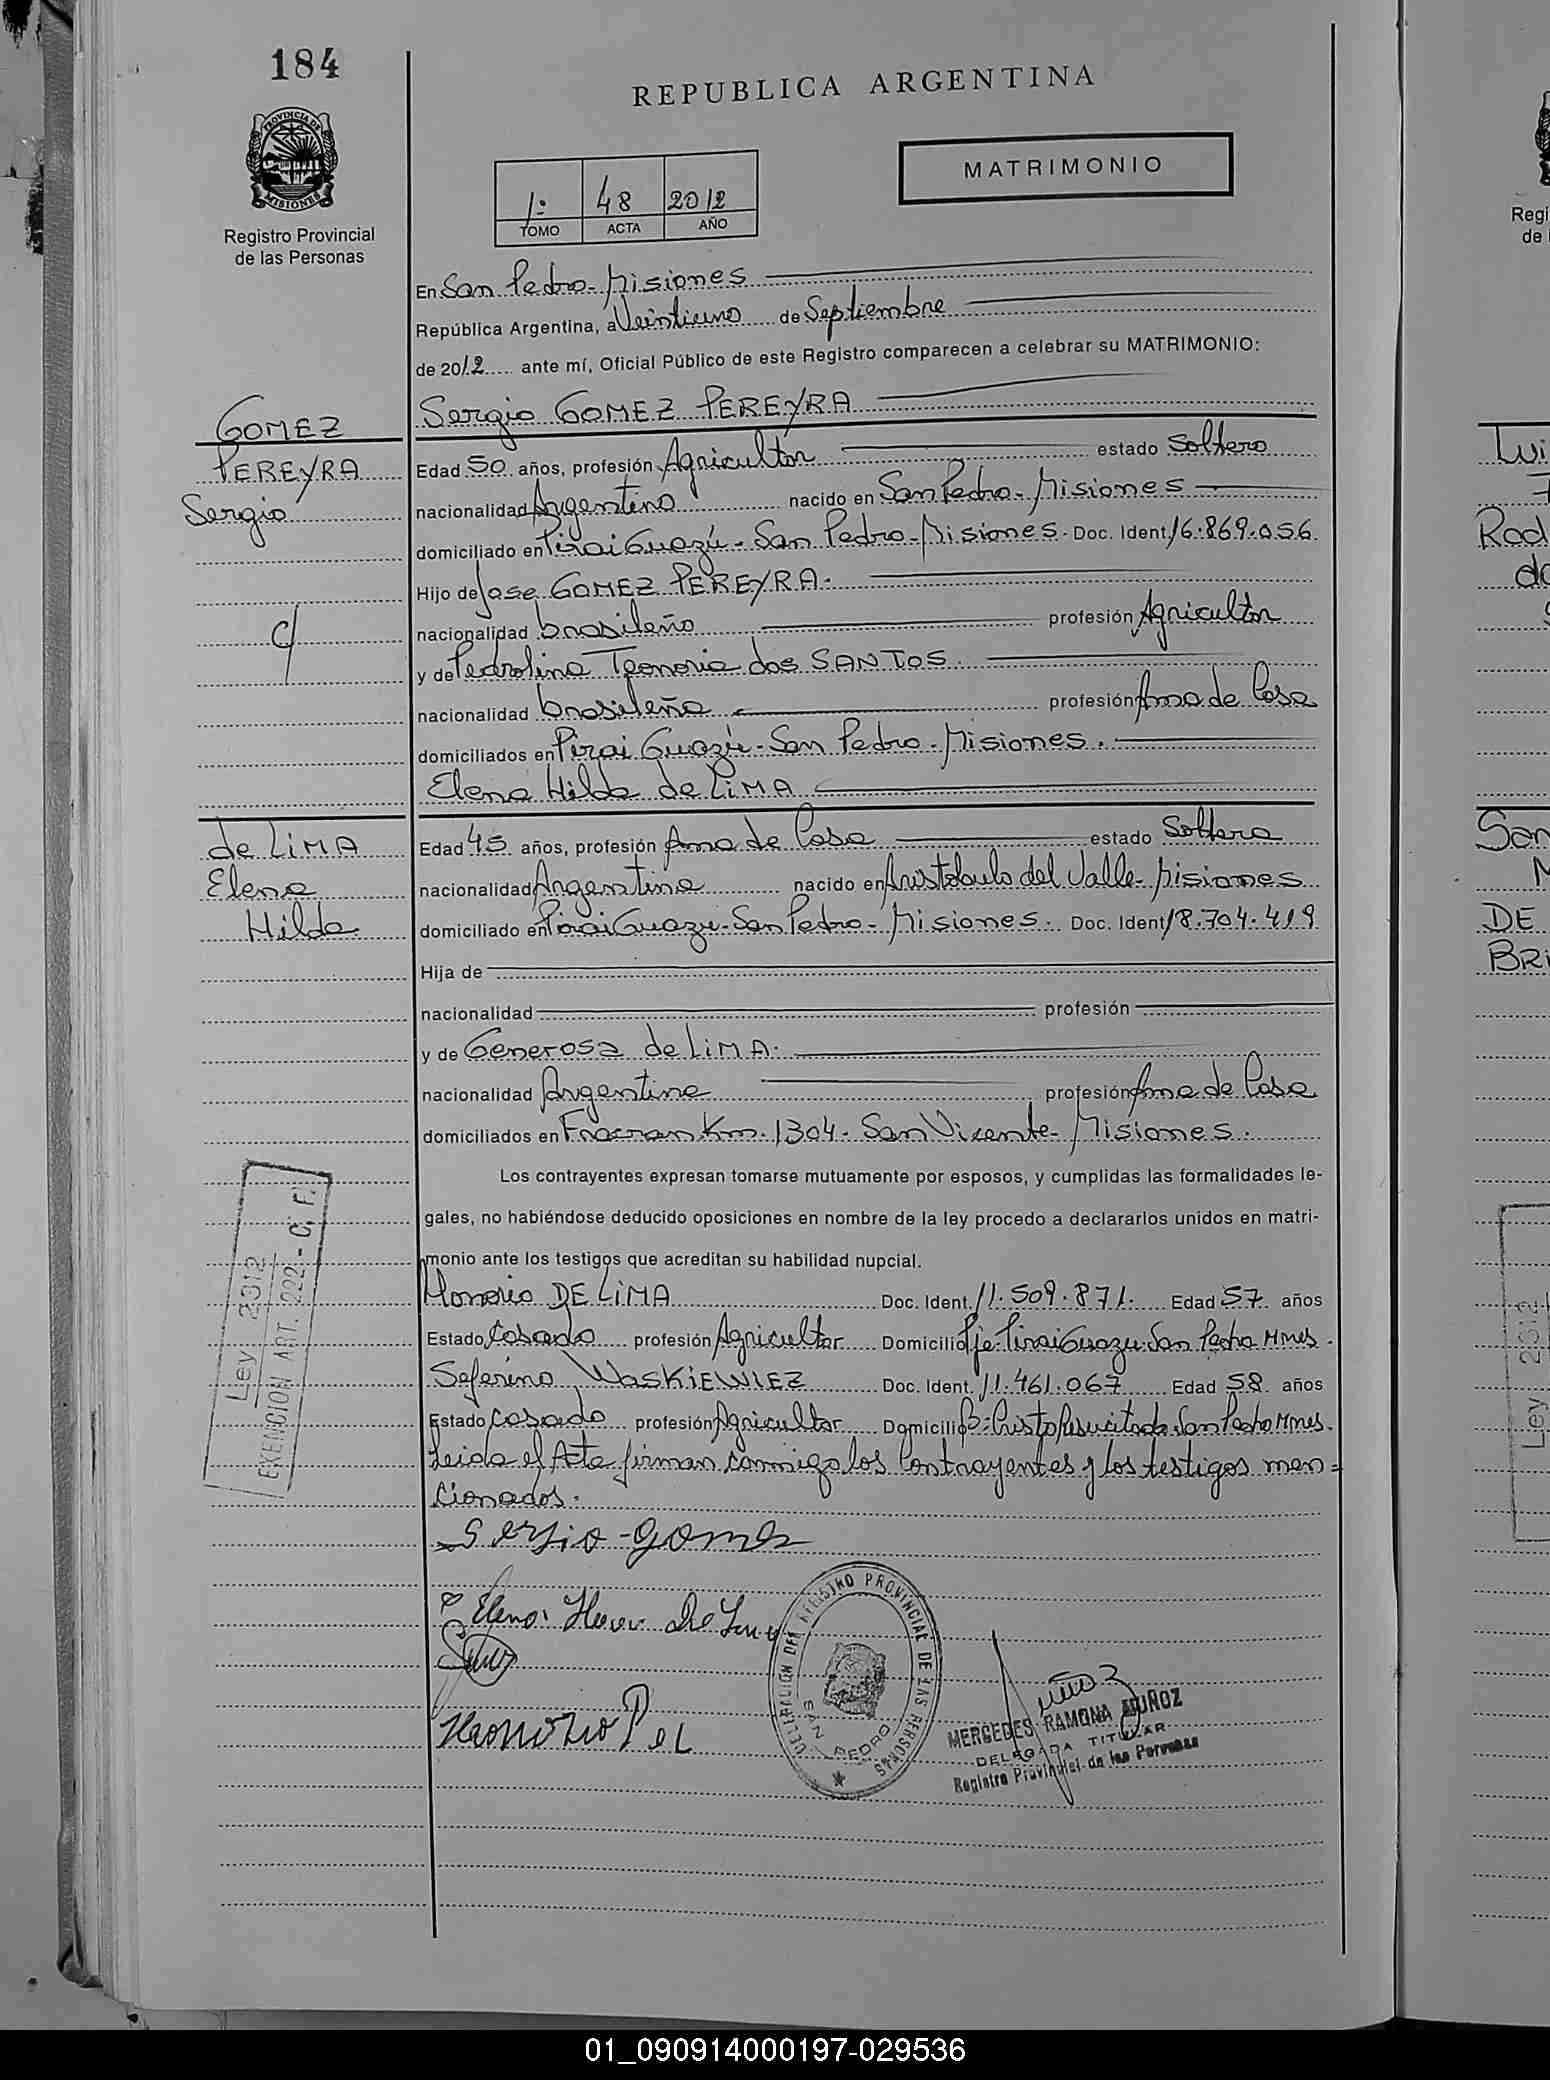 184
REPUBLICA ARGENTINA
PROVINCIA DE
MISIONES
MATRIMONIO
1º 48 2012
TOMO ACTA AÑO
Registro Provincial
de las Personas
En San Pedro - Misiones
República Argentina, a Veintiuno de Septiembre
de 2012 ante mí, Oficial Público de este Registro comparecen a celebrar su MATRIMONIO:
GOMEZ
PEREYRA
Sergio
c/
Sergio GOMEZ PEREYRA
Edad 50 años, profesión Agricultor estado Soltero
nacionalidad Argentino nacido en San Pedro - Misiones
domiciliado en Pirai Guazú - San Pedro - Misiones. Doc. Ident. 16.869.056
Hijo de Jose GOMEZ PEREYRA.
nacionalidad brasileño profesión Agricultor
y de Pedrolina dos SANTOS
nacionalidad brasileña profesión Ama de Casa
domiciliados en Pirai Guazú - San Pedro - Misiones.
Elena Hilda de LiMA
de LiMA
Elena
Hilda
Edad 45 años, profesión Ama de Casa estado Soltera
nacionalidad Argentina nacido en Aristobulo del Valle - Misiones
domiciliado en Pirai Guazu - San Pedro - Misiones. Doc. Ident. 18.704.419
Hija de
nacionalidad profesión
y de Generosa de LiMA.
nacionalidad Argentina profesión Ama de Casa
domiciliados en Fracran Km. 1304 - San Vicente - Misiones.
Los contrayentes expresan tomarse mutuamente por esposos, y cumplidas las formalidades le-
gales, no habiéndose deducido oposiciones en nombre de la ley procedo a declararlos unidos en matri-
monio ante los testigos que acreditan su habilidad nupcial.
Ley 2312
EXENCION ART. 222 - C. F.
Honorio DE LiMA Doc. Ident. 11.509.871. Edad 57 años
Estado Casado profesión Agricultor Domicilio Pje. Pirai Guazu - San Pedro Mnes.
Seferino WASKiEWIEZ Doc. Ident. 11.461.067 Edad 58 años
Estado Casado profesión Agricultor Domicilio Bº Cristo Resucitado San Pedro Mnes.
Leida el Acta firman conmigo los Contrayentes y los testigos men=
cionados.
Sergio - gomez
Elena
Honorio DeL
DELEGACION DEL REGISTRO PROVINCIAL DE LAS PERSONAS
SAN PEDRO
MERCEDES RAMONA MUÑOZ
DELEGADA TITULAR
Registro Provincial de las Personas
Regi
de l
Lui
Rod
San
M
DE
BRi
Ley 2312
01_090914000197-029536